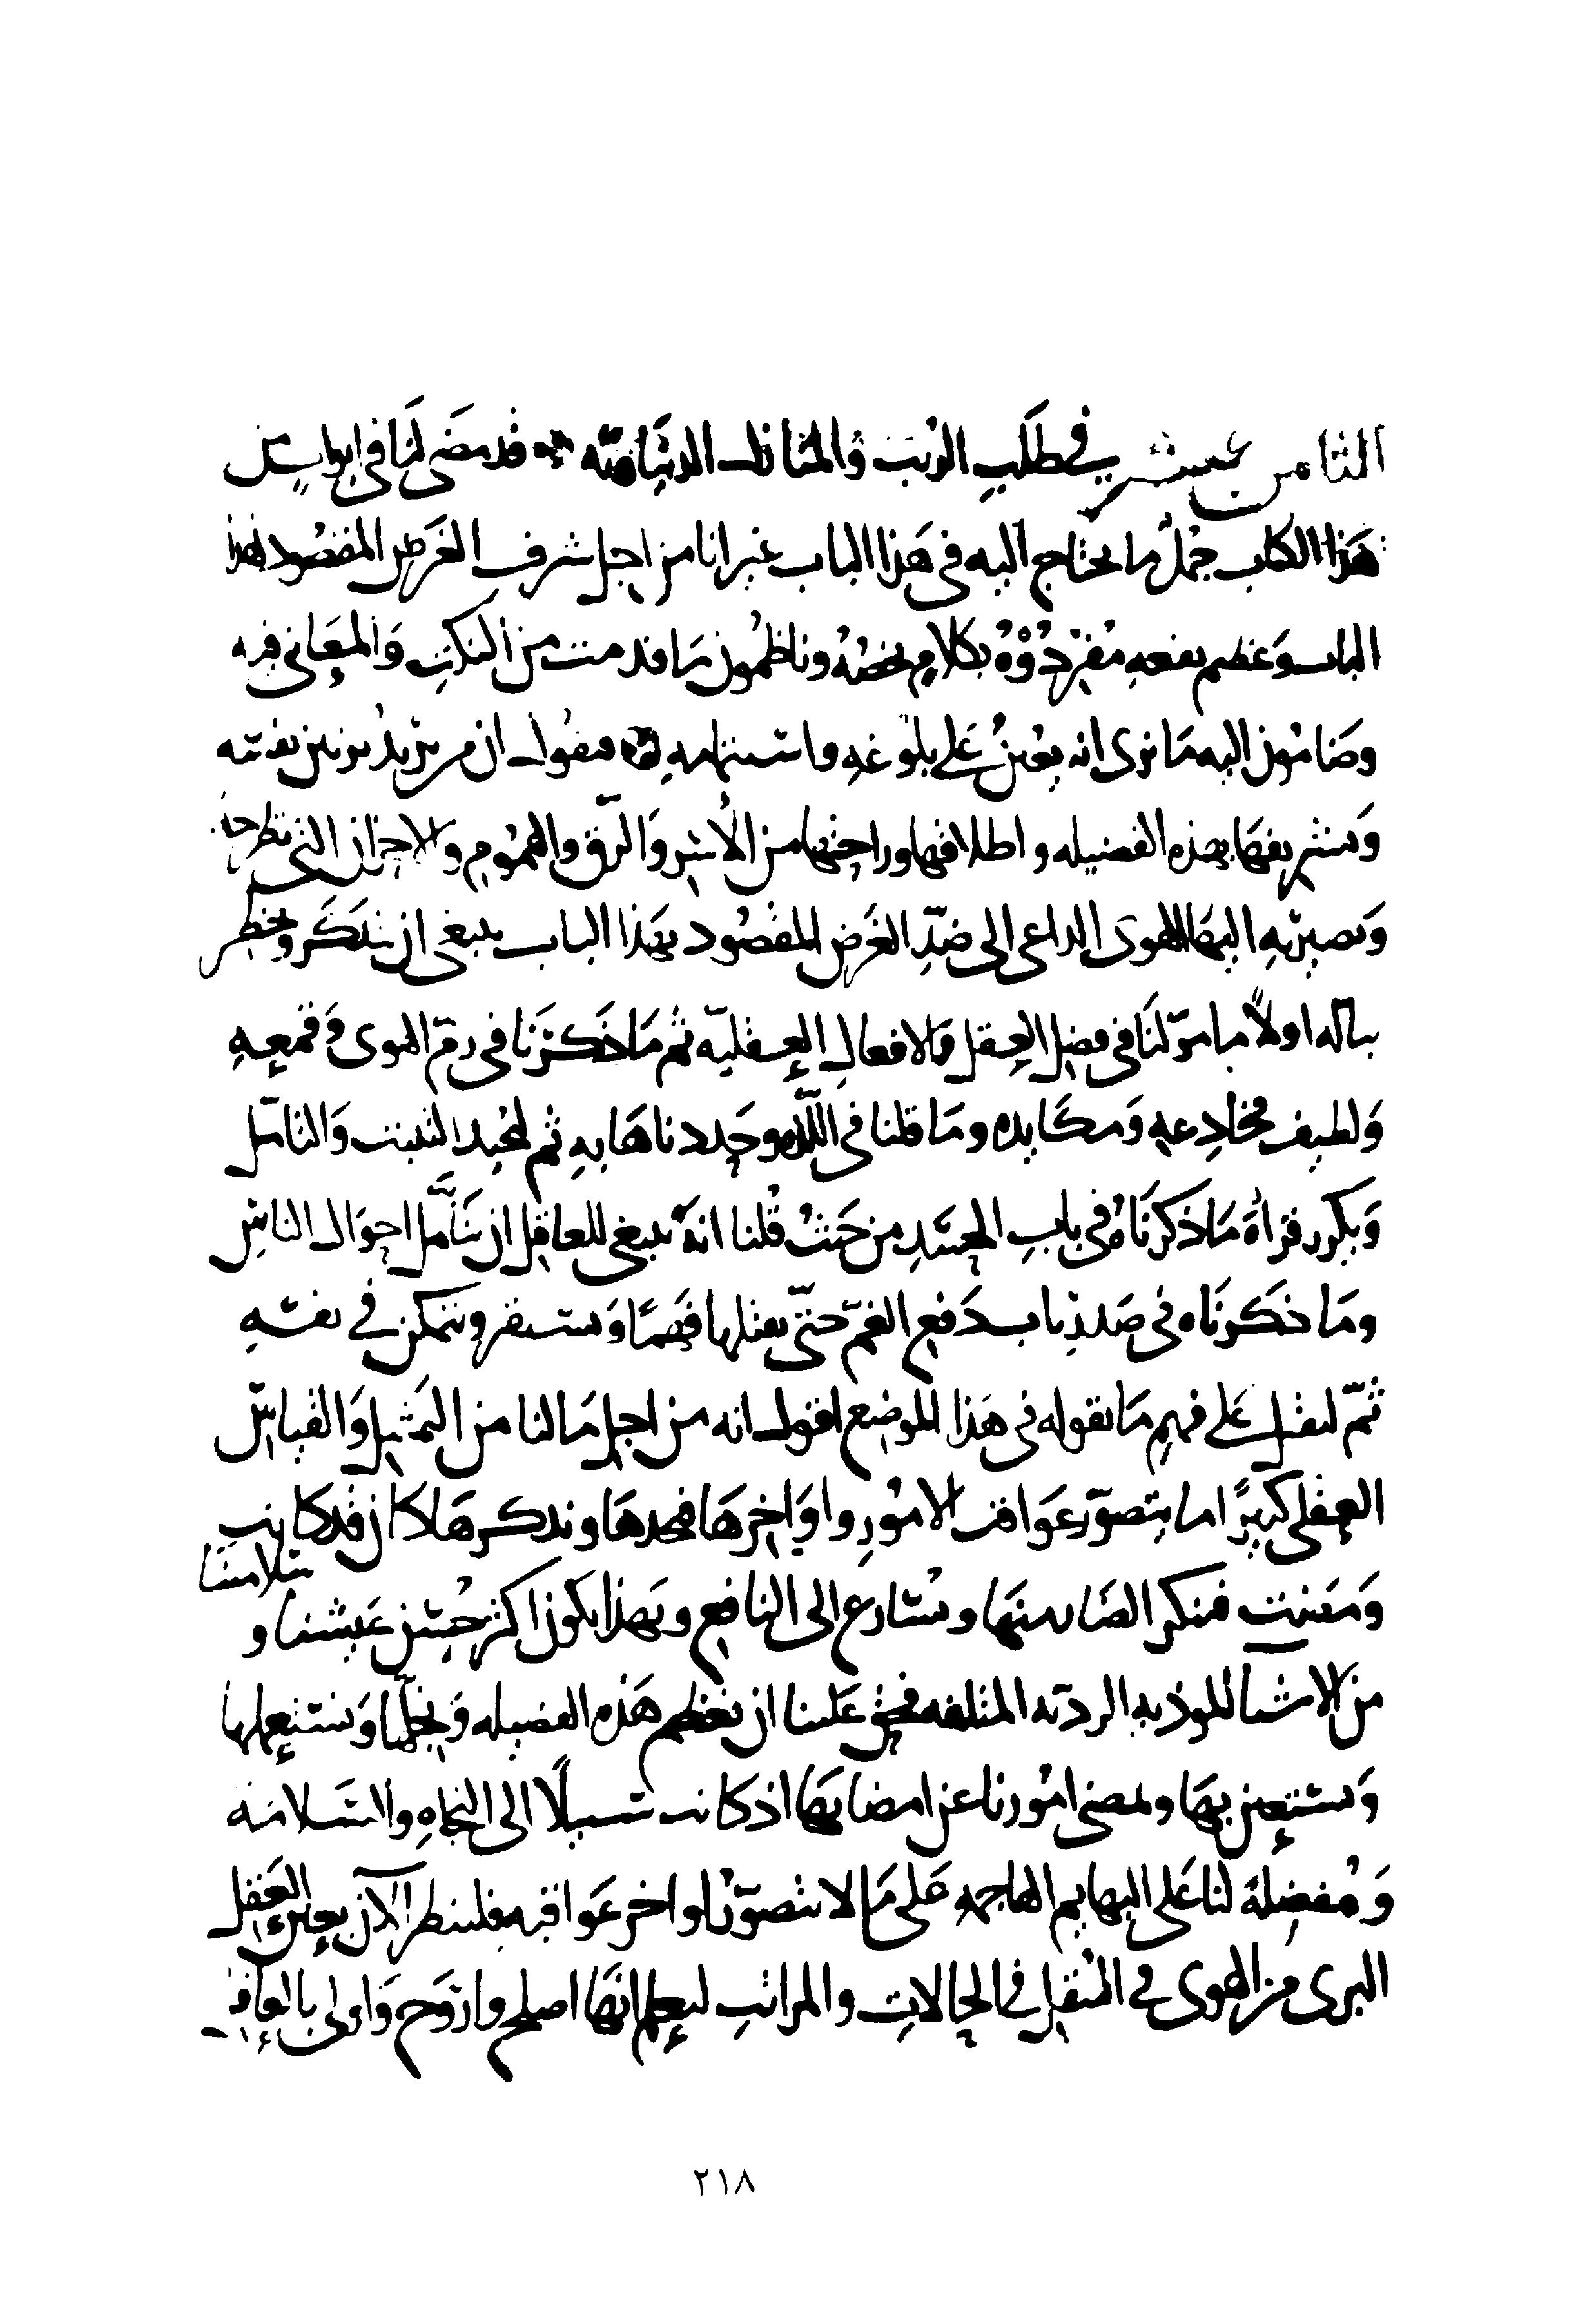 الثامن عشر في طلب الرتب والمنازل الدنيائية قد مضى لنا في ابواب من
هذا الكتاب جمل ما يحتاج اليه في هذا الباب غير انا من اجل شرف الغرض المقصود بهذا
الباب وعظم نفعه مفردوه بكلام يخصه وناظمون ما قد مت من النكت والمعاني فيه
وضامون اليه ما نرى انه يعين على بلوغه واستتمامه فنقول ان من يريد تزيين نفسه
وتشريفها بهذه الفضيله واطلاقها وراحتها من الأسر والرق والهموم والاحزان التي تطرحه
وتصير به اليها الهوى الداعي الى ضد الغرض المقصود بهذا الباب ينبغي ان يتذكر ويخطر
بباله اولاً ما مر لنا في فضل العقل والافعال العقلية ثم ما ذكرنا في زم الهوى وقمعه
ولطيف مخادعه ومكايده وما قلنا في اللذه وحددناها به ثم ليجد التثبت والتأمل
ويكرر قراءة ما ذكرناه في باب الحسد من حيث قلنا انه ينبغي للعاقل ان يتأمل احوال الناس
وما ذكرناه في صدر باب دفع الغم حتى يقتلها فهمًا وتستقر وتتمكن في نفسه
ثم ليقبل على فهم ما نقوله في هذا الموضع اقول انه من اجل ما لنا من التمثيل والقياس
العقلي كثيرًا ما نتصور عواقب الامور واواخرها فنجدها وندركها كان قد كانت
ومضت فنتنكب الضار منها ونسارع الى النافع وبهذا يكون اكثر حسن عيشنا و سلامتنا
من الاشيا الموذيه الرديه المتلفه فحق علينا ان نعظم هذه الفضيله ونجلها ونستعملها
ونستعين بها ونمضي امورنا عن امضايها اذ كانت سبيلًا الى النجاه والسلامه
ومفضلة لنا على البهايم الهاجمه على ما لا تتصور اواخر عواقبه فلننظر الآن بعين العقل
البري من الهوى في التنقل في الحالات والمراتب لنعلم ايها اصلح واروح واولى بالعاقل
٢١٨